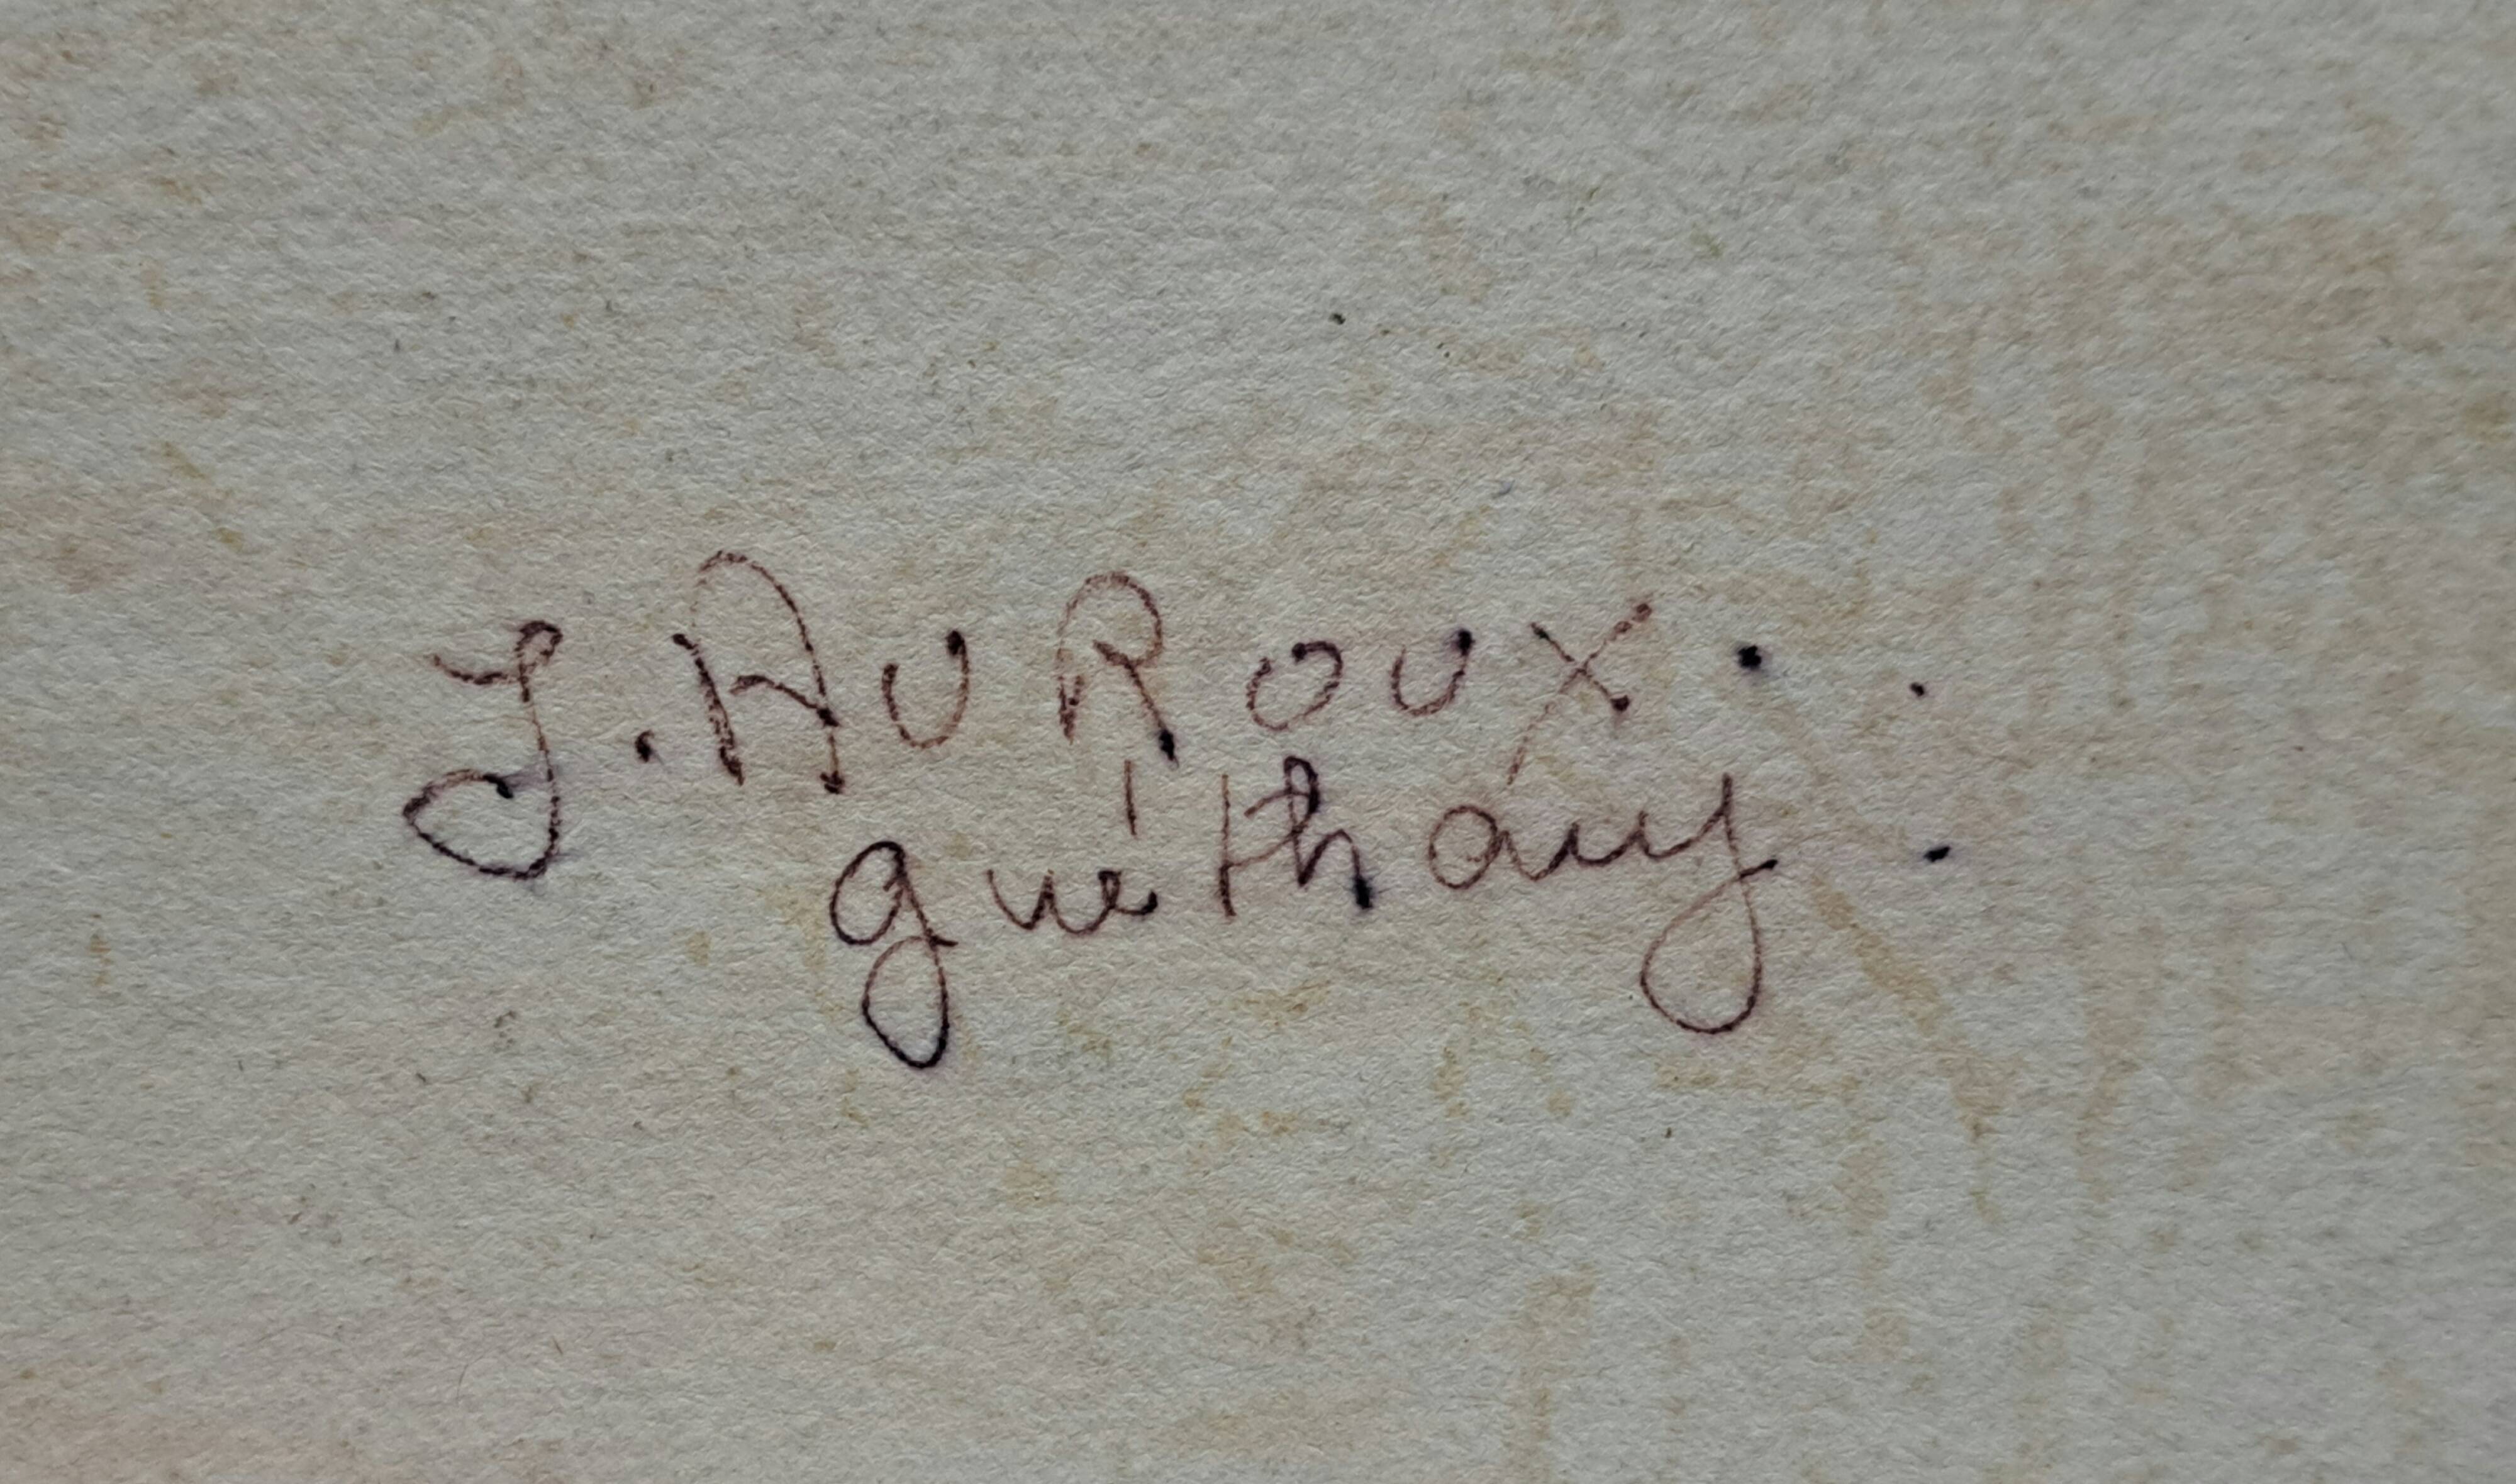 J. AUROUX.
guéthary.